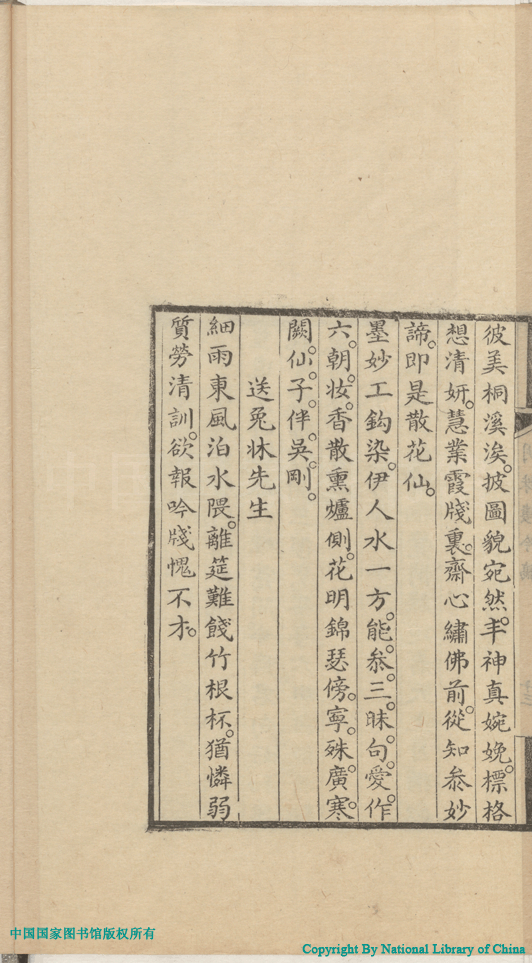 彼美桐溪涘。披圖貌宛然。丰神真婉娩。標格
想清妍。慧業霞牋裏。齋心繡佛前。從知叅妙
諦。即是散花仙。
墨妙工鈎染。伊人水一方。能叅三昧句。愛作
六朝妝。香散熏爐側。花明錦瑟傍。寧殊廣寒
闕。仙子伴吳剛。
送兔牀先生
細雨東風泊水隈。離筵難餞竹根杯。猶憐弱
質勞清訓。欲報吟牋愧不才。
中国国家图书馆版权所有
Copyright By National Library of China